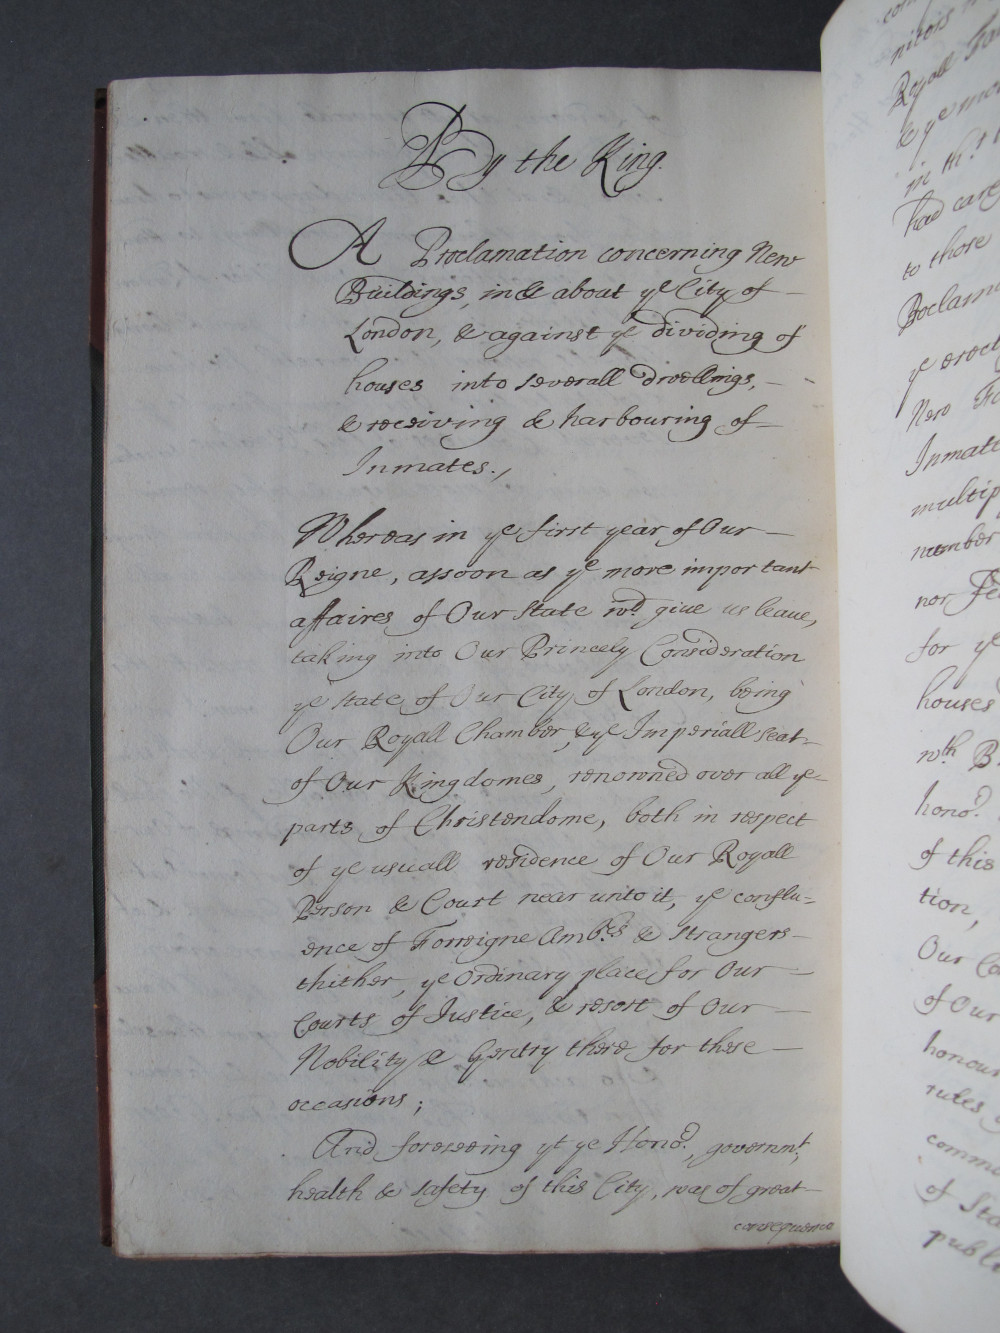 By the King.
A Proclamation concerning New
Buildings, in & about ye City of
London, & against ye dividing of
houses into severall dwellings,
& receiving & harbouring of
Inmates.,
Whereas in ye first year of Our
Reigne, assoon as ye more important
affaires of Our State wd. give us leave,
taking into Our Princely Consideration
ye State of Our City of London, being
Our Royall Chamber, & ye Imperiall Seat
of Our Kingdomes, renowned over all ye
parts of Christendome, both in respect
of ye usuall residence of Our Royall
Person & Court near unto it, ye conflu=
ence of Forreigne Ambrs & Strangers
thither, ye Ordinary place for Our
Courts of Justice, & resort of Our
Nobility & Gentry there for these
occasions;
And foreseeing yt ye Honor., governmt,
health & safety of this City, was of great
consequence
nitors
Royall
& ye mo
in tht
had care
to those
Proclama
ye erect
New Fo
Inmat
multip
number
nor
for ye
houses
wth B
honor.
of this
tion,
Our
of Our
honour
rules
comm
of Sta
publi